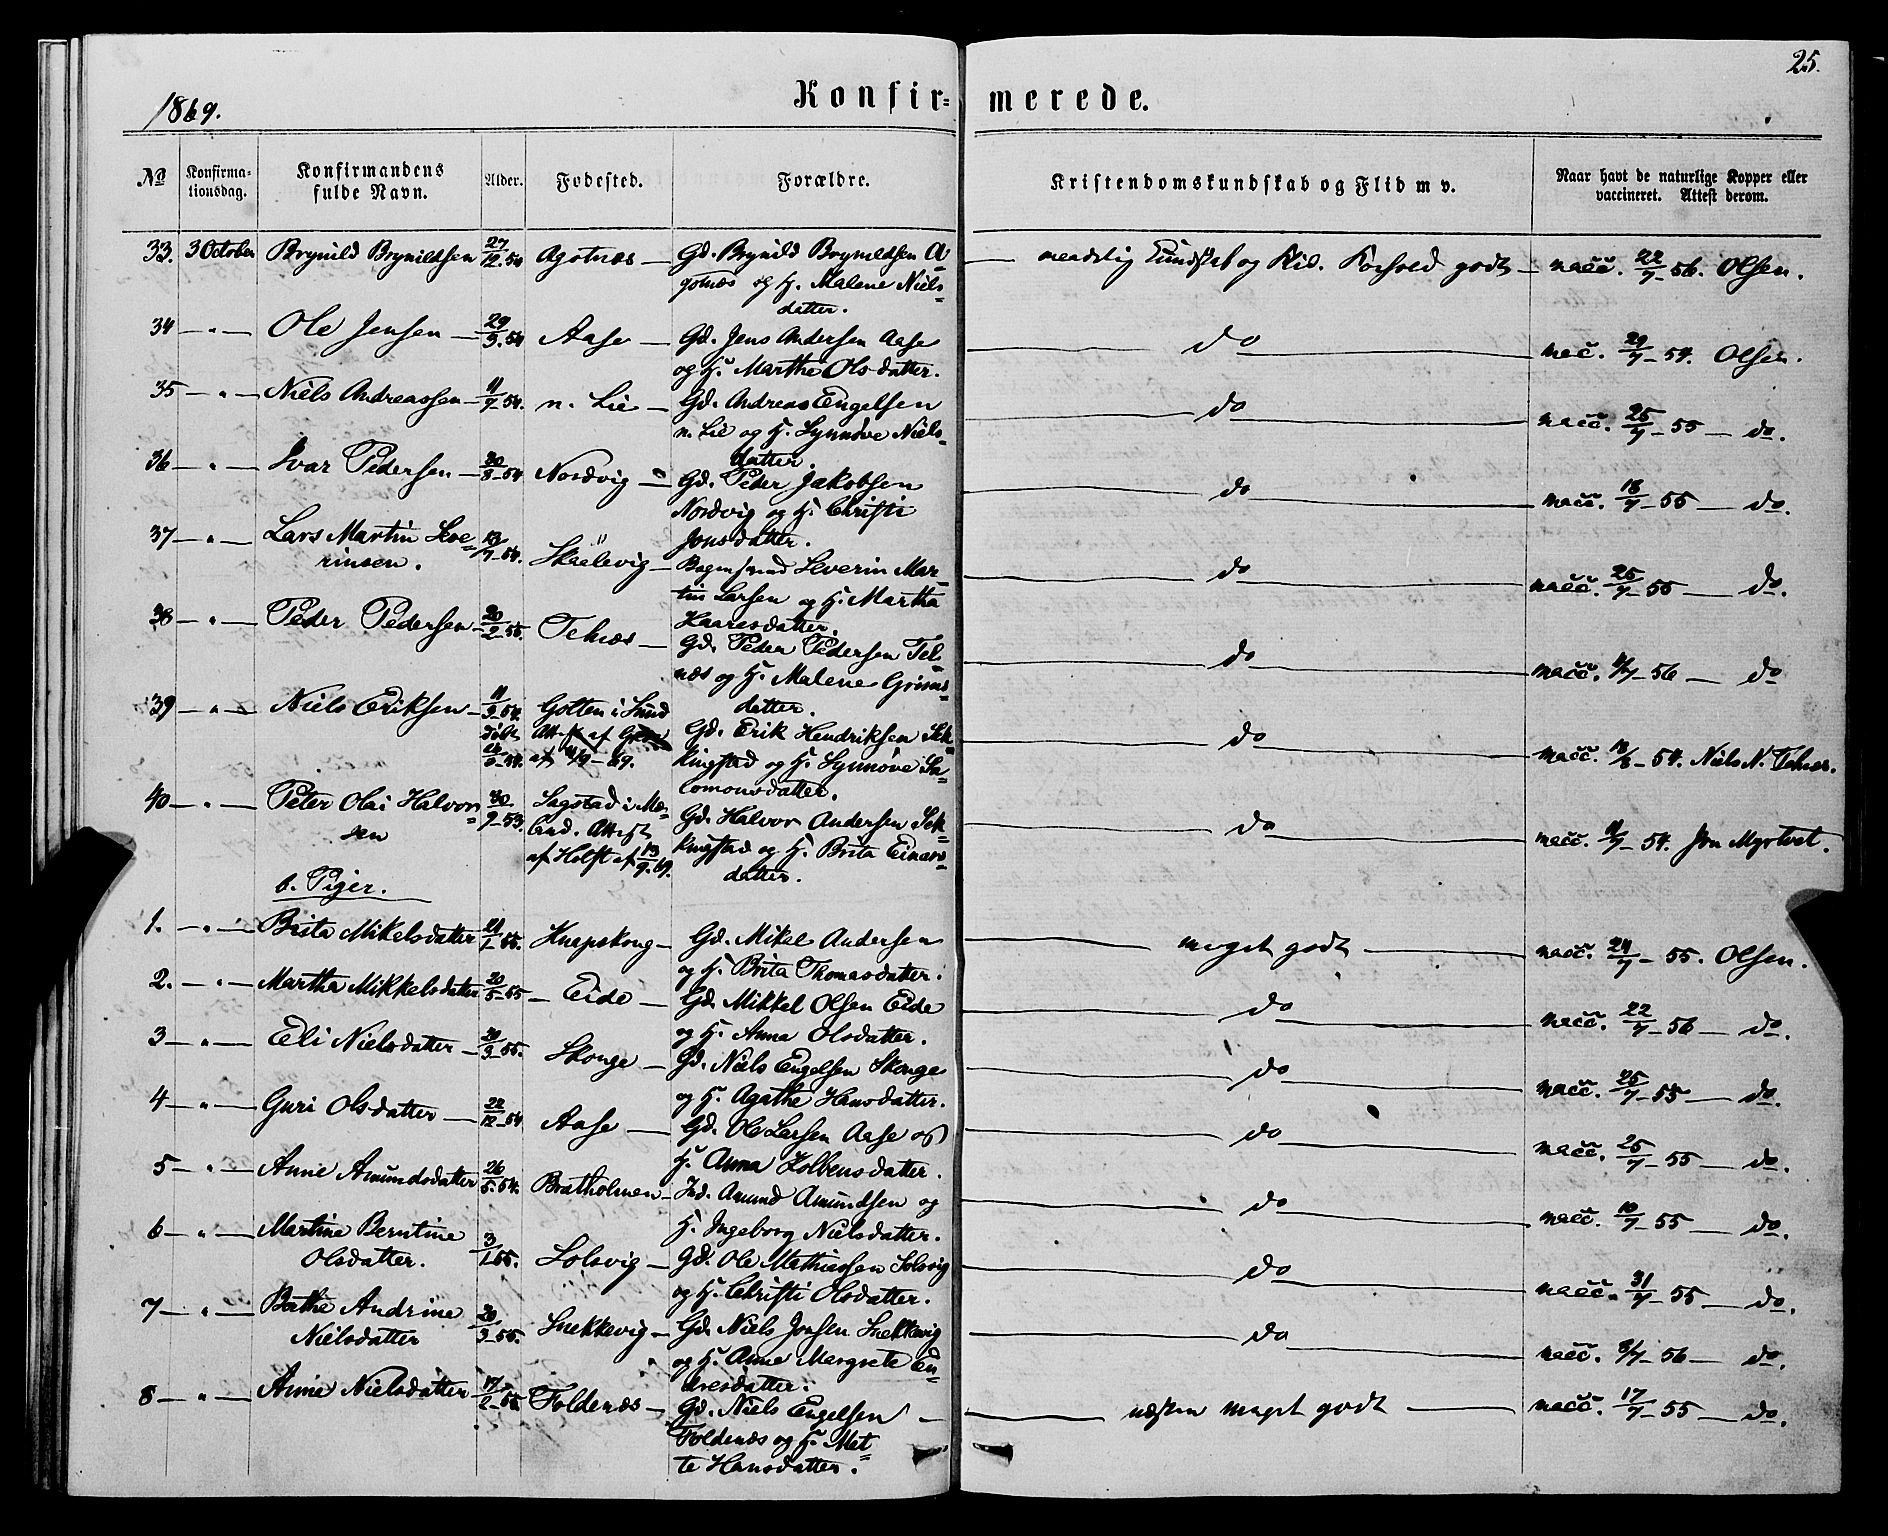 25.
1869.
Konfir= merede.
No
Konfirma=
tionsdag.
Konfirmandens
fulde Navn.
Alder.
Fødested.
Forældre.
Kristendomskundskab og Flid m v.
Naar havt de naturlige Kopper eller
vaccineret. Attest derom.
33. 3 October Brynild Brynildsen 27/12.54 Agotnæs — Gd. Brynild Brynildsen A= godt — vacc. 22/7-56. Olsen.
gotnæs og H. Malene Niels=
datter.
34 — " — Ole Jensen — 29/3.54 Aase — Gd. Jens Andersen Aase do vacc. 29/7-54. Olsen.
og H. Marthe Olsdatter.
35 — " — Niels Andreassen — 11/7-54. n. Lie — Gd. Andreas Engelsen do vacc. 25/7-55 — do.
n. Lie og H. Synnøve Niels=
datter
36 — " — Ivar Pedersen — 30/8-54 Nordvig — Gd. Peder Jakobsen do vacc. 18/7-55 — do.
Nordvig og H. Christi
Jonsdatter.
37 — " — Lars Martin Seve= 13/7-54. Skaelevig — Severin Mar= do vacc. 25/7-55 — do.
rinsen. tin Larsen og H. Martha
Haaresdatter.
38 — " — Peder Pedersen — 20/2-55. Telnæs — Gd. Peder Pedersen Tel= do vacc. 4/7-56 — do
næs og H. Malene Grims=
datter.
39 — " — Niels Eriksen — 11/3-54. Golten i Sund Gd. Erik Hendriksen Sek= do vacc. Niels N. Telnæs.
døbt
af 4/9-69. kingstad og H. Synnøve Sa=
lomonsdatter.
40 — " — Peter Olai Halvor= 30/9-53. Sagstad i Mæ= Gd. Halvor Andersen Sek= do vacc. 11/7-54. Jon Myrtvet.
sen land. Attest kingstad og H. Brita Einars=
af Holst af 13/9.69. datter.
b. Piger.
1. — " — Brita Mikelsdatter 21/1-55. Knapskong — Gd. Mikel Andersen meget godt vacc. 24/7-55. Olsen.
og H. Brita Thomasdatter.
2. — " — Martha Mikkelsdatter 20/5-55 — Eide — Gd. Mikkel Olsen Eide do vacc. 22/7-56 — do.
og H. Anna Olsdatter.
3 — " — Eli Nielsdatter — 20/3-55. Skonge — Gd. Niels Engelsen Skonge do vacc. 25/7-55 — do.
og H. Agathe Hansdatter.
4 — " — Guri Olsdatter — 22/12-54 Aase — Gd. Ole Larsen Aase og do vacc. 25/7-55 — do.
H. Anna Kolbensdatter.
5 — " — Anne Amundsdatter 26/5.54. Bratholmen — Ind. Amund Amundsen og do vacc. 10/7-55 — do.
H. Ingeborg Nielsdatter.
6 — " — Martine Berntine 3/1.55. Solsvig — Gd. Ole Mathiassen Solsvig do vacc. 31/7-55 — do.
Olsdatter. og H. Christi Olsdatter.
7 — " — Berthe Andrine 20/3-55. Snekkevig — Gd. Niels Jonsen Snekkevig do vacc. 8/7-56 — do.
Nielsdatter og H. Anne Margrete En=
dresdatter.
8 — " — Anne Nielsdatter 17/2-55 Foldenæs — Gd. Niels Engelsen — næsten meget godt vacc. 17/7-55 — do.
Foldenæs og H. Met=
te Hansdatter.